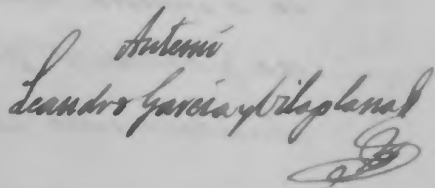 Antemí
Leandro Garcia y Vilaplana